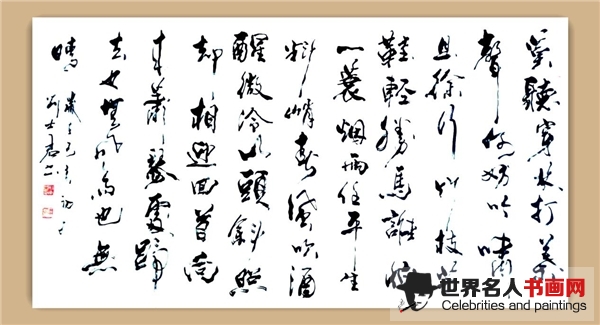 莫聽穿林打葉
聲何妨吟嘯
且徐行竹杖芒
鞋輕勝馬誰怕
一蓑烟雨任平生
料峭春風吹酒
醒微冷山頭斜照
却相迎回首向
來蕭瑟處歸
去也無風雨也無
晴
世界名人书画网
Celebrities and paintings